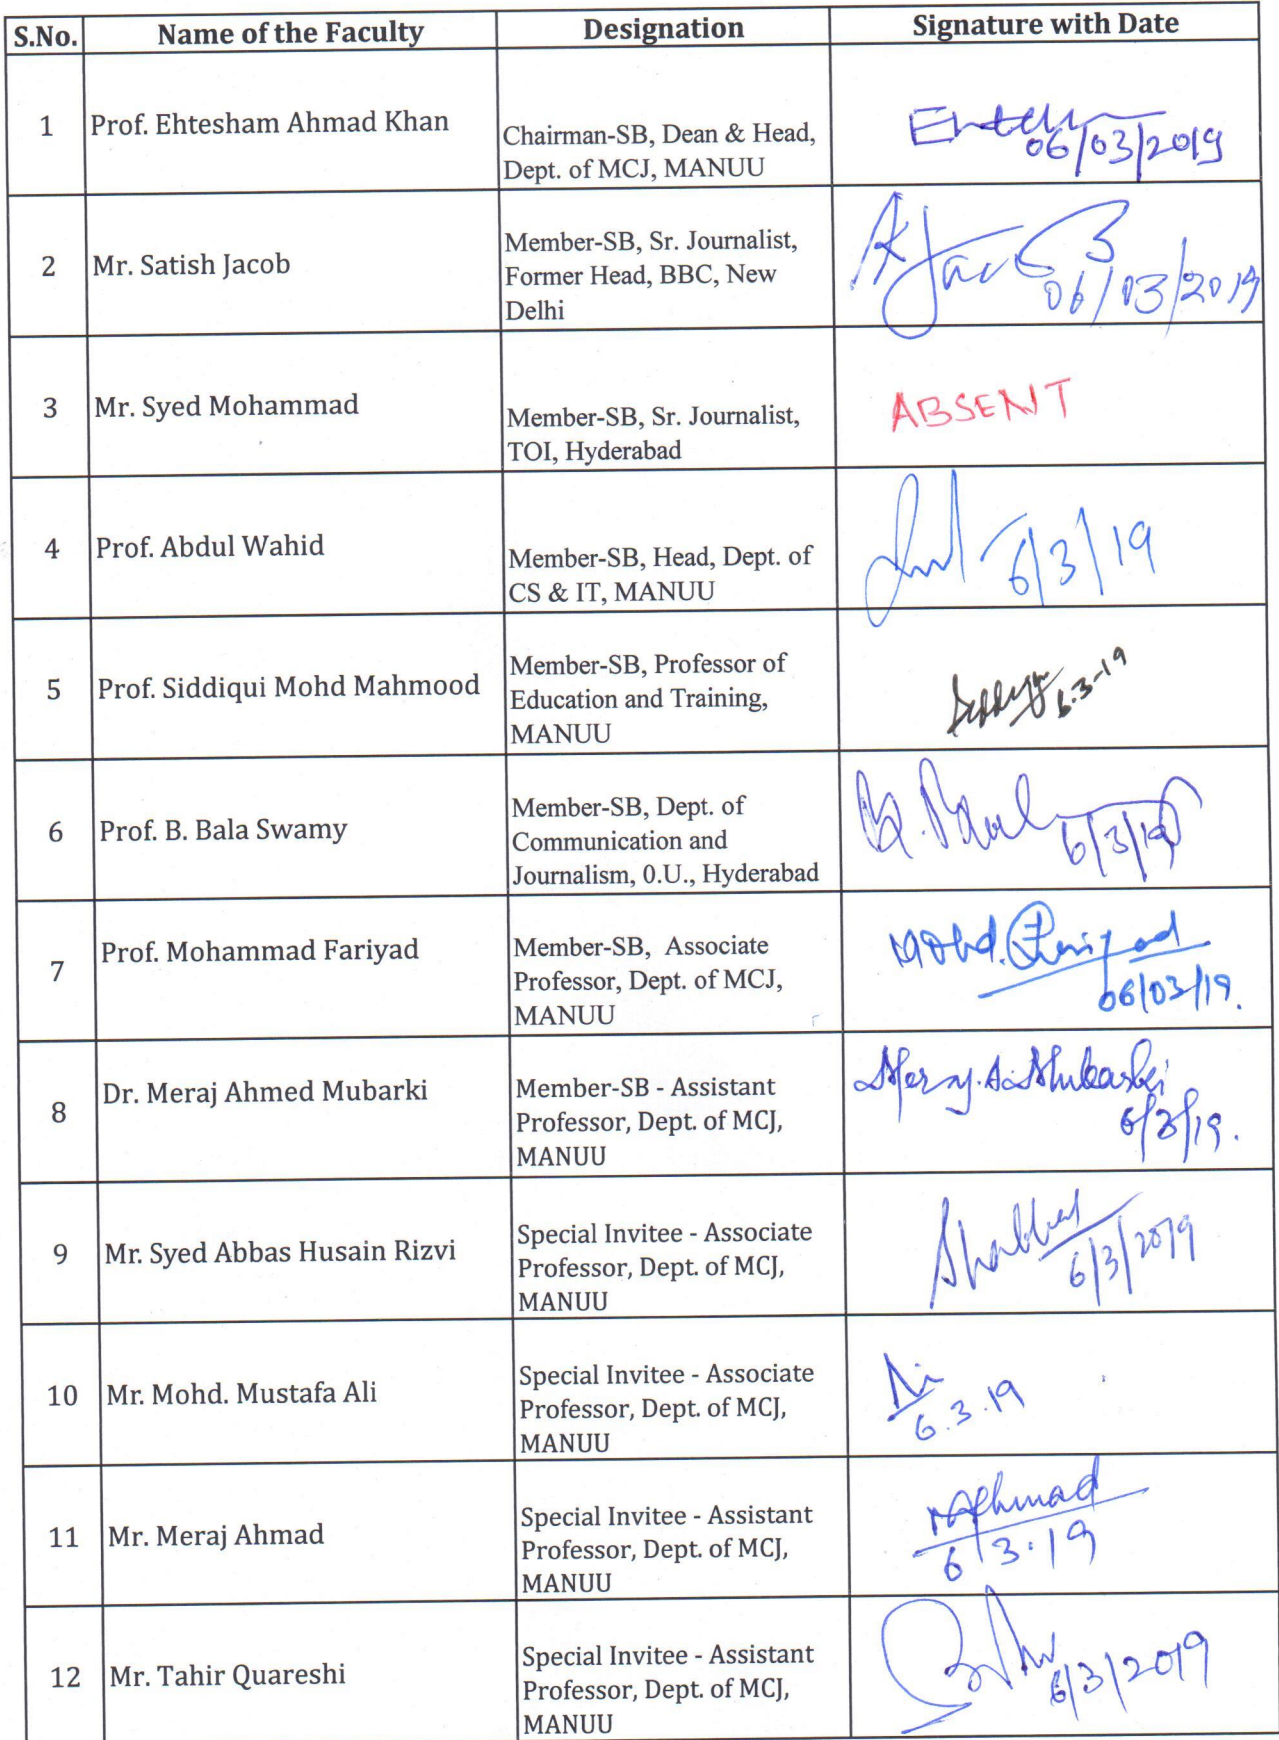 S.No. Name of the Faculty Designation Signature with Date
1 Prof. Ehtesham Ahmad Khan
Chairman-SB, Dean & Head,
Dept. of MCJ, MANUU
06/03/2019
2 Mr. Satish Jacob
Member-SB, Sr. Journalist,
Former Head, BBC, New
Delhi
06/03/2019
3 Mr. Syed Mohammad
Member-SB, Sr. Journalist,
TOI, Hyderabad
ABSENT
4 Prof. Abdul Wahid
Member-SB, Head, Dept. of
CS & IT, MANUU
6/3/19
5 Prof. Siddiqui Mohd Mahmood
Member-SB, Professor of
Education and Training,
MANUU
6.3-19
6 Prof. B. Bala Swamy
Member-SB, Dept. of
Communication and
Journalism, 0.U., Hyderabad
6/3/19
7 Prof. Mohammad Fariyad
Member-SB, Associate
Professor, Dept. of MCJ,
MANUU
Mohd. Fariyad
06/03/19.
8 Dr. Meraj Ahmed Mubarki
Member-SB - Assistant
Professor, Dept. of MCJ,
MANUU
Meraj. A. Mubarki
6/3/19.
9 Mr. Syed Abbas Husain Rizvi
Special Invitee - Associate
Professor, Dept. of MCJ,
MANUU
6/3/2019
10 Mr. Mohd. Mustafa Ali
Special Invitee - Associate
Professor, Dept. of MCJ,
MANUU
6.3.19
11 Mr. Meraj Ahmad
Special Invitee - Assistant
Professor, Dept. of MCJ,
MANUU
MAhmad
6/3.19
12 Mr. Tahir Quareshi
Special Invitee - Assistant
Professor, Dept. of MCJ,
MANUU
6/3/2019